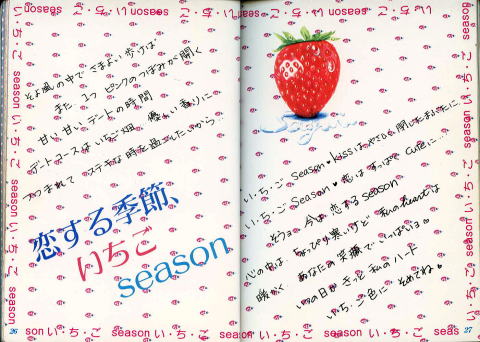 い・ち・ご season い・ち・ご season い・ち・ご season
そよ風の中で さまよい歩けば
また 1つ ピンクのつぼみが開く
甘い甘いデートの時間
デートコースはいちご畑 優しい香りに
つつまれて ステキな時を過ごしたいから
恋する季節、
いちご
season
い・ち・ご Season・Kissは
い・ち・ご Season・恋はすっぱくて Cuteに…
今は 恋する season
心の中は、ちょっぴり寒いけど 私のHeartは
暖かく あなたの笑顔で いっぱいよ。
いつの日か きっと 私のハート
い・ち・ご色に そめてね。
26
son い・ち・ご season い・ち・ご season い・ち・ご seas
27